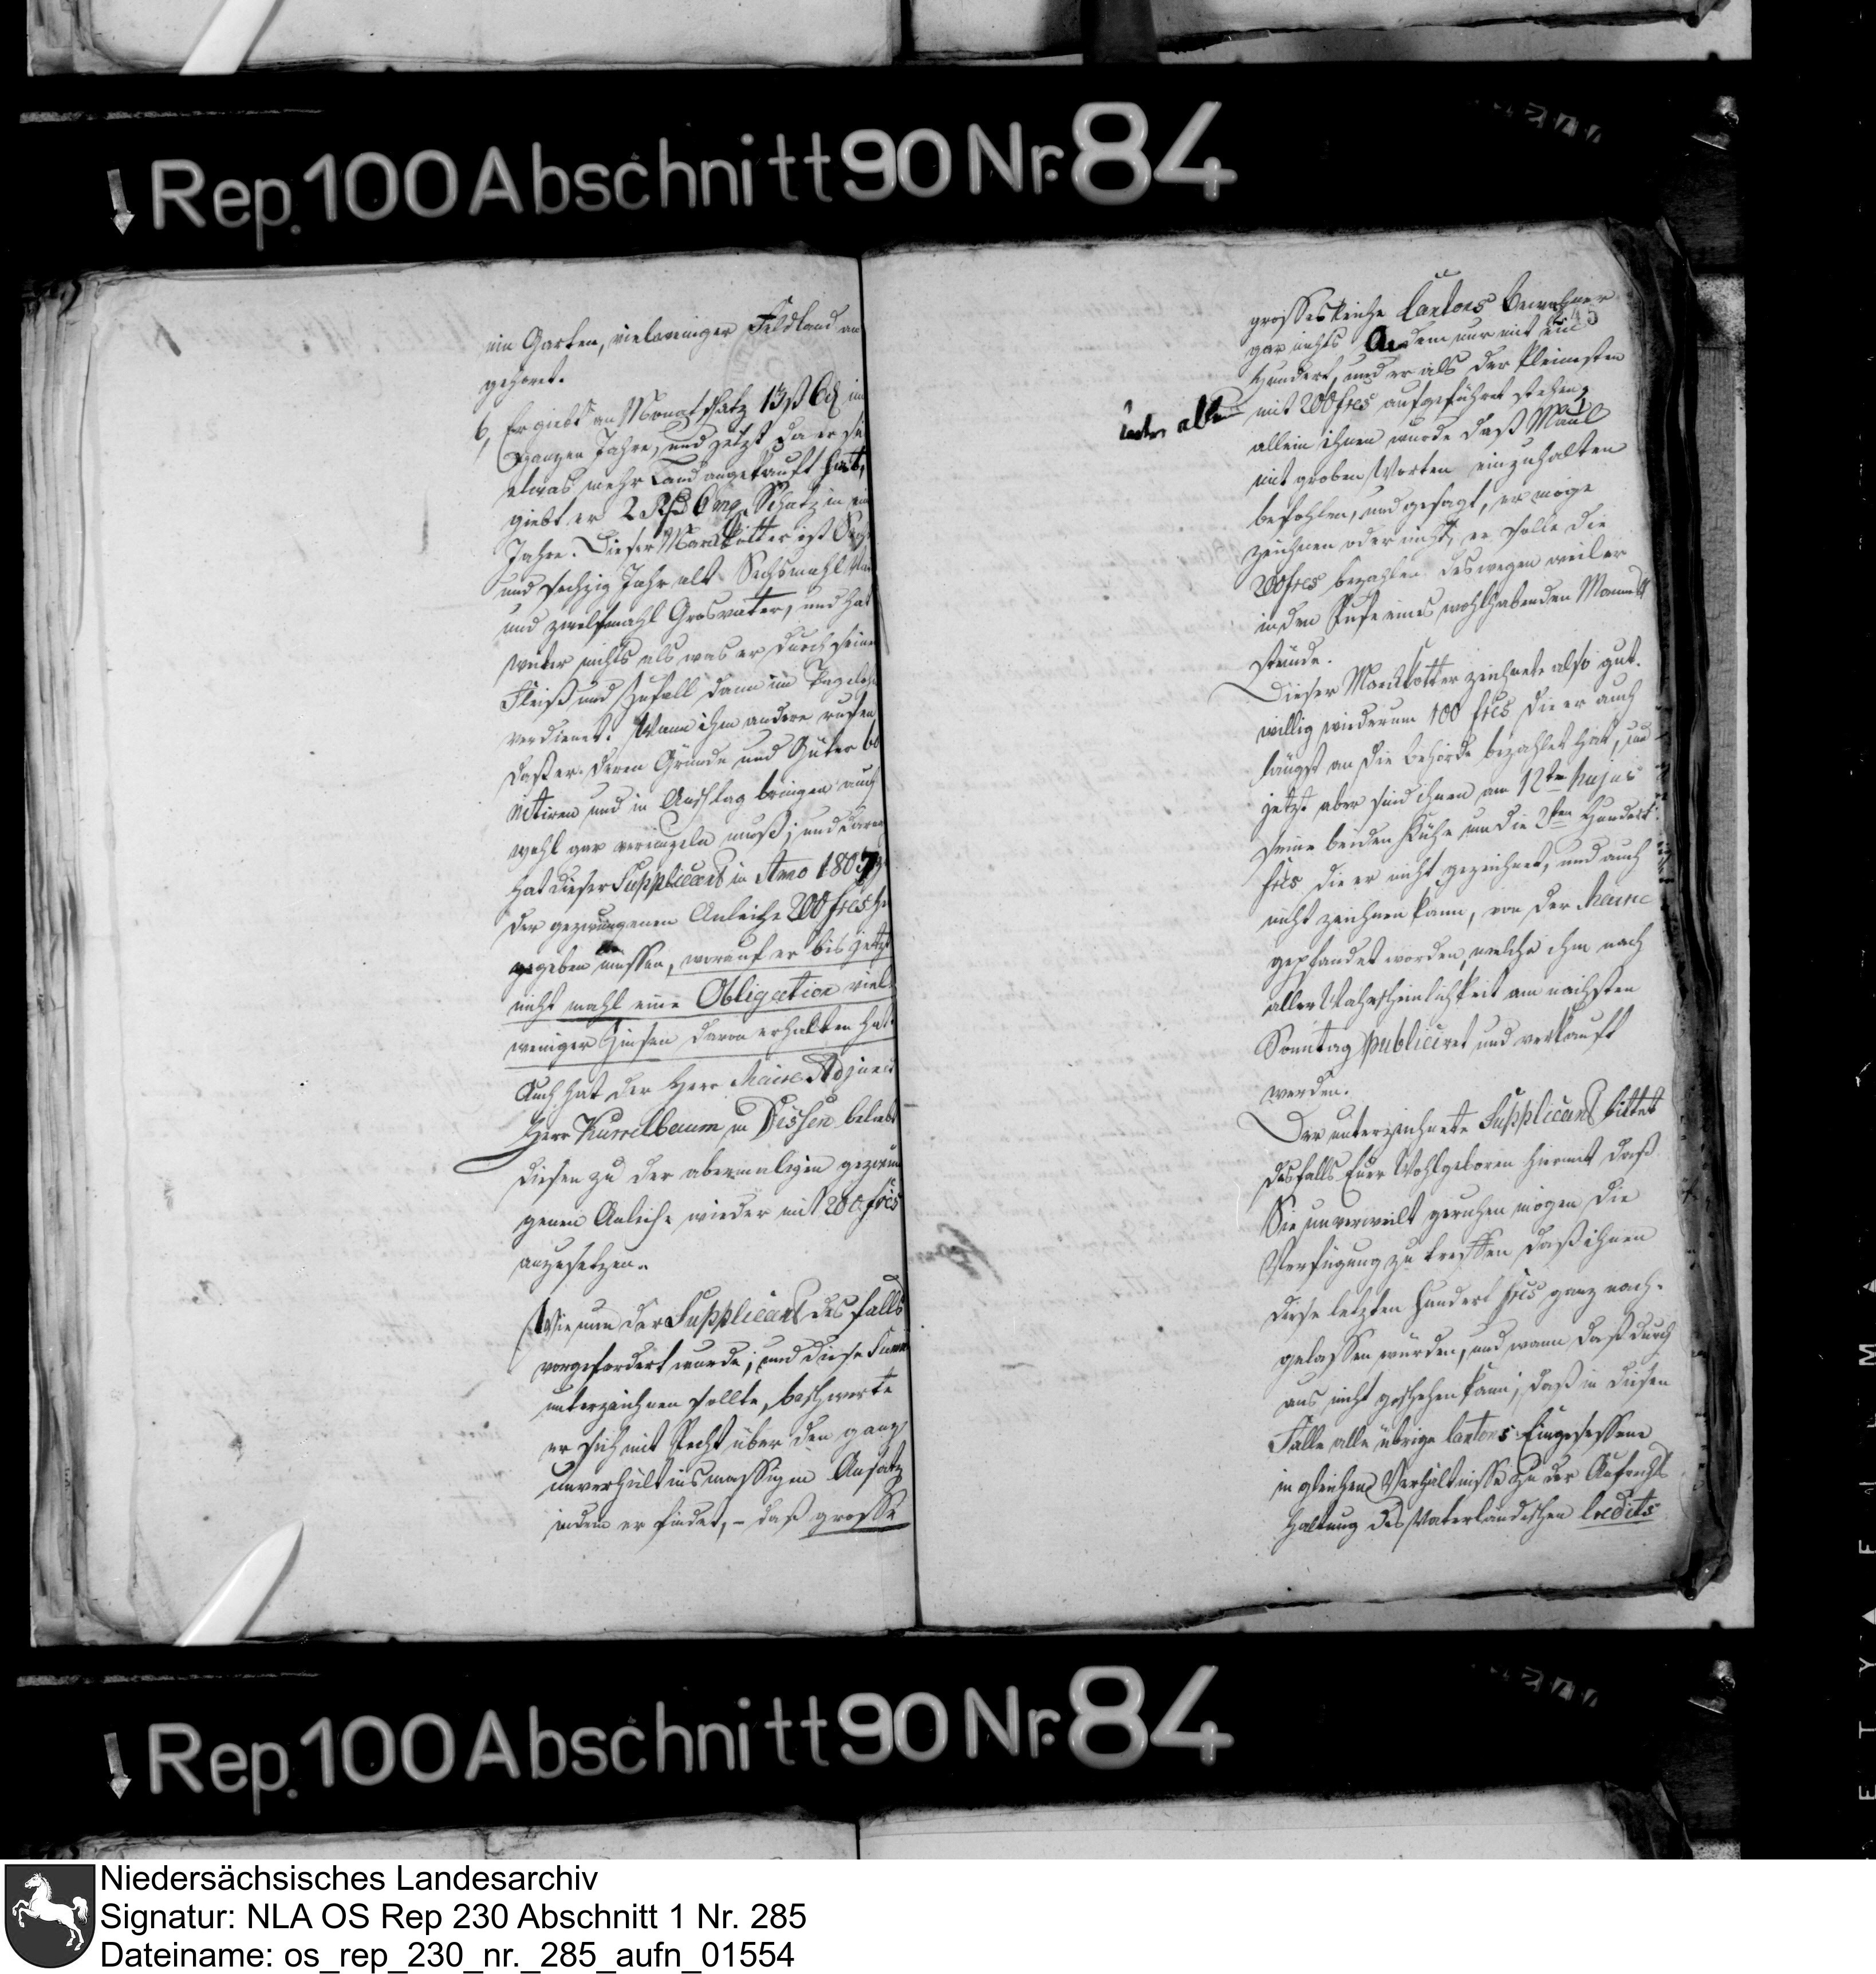 Rep. 100 Abschnitt 90 Nr. 84
ein Garten, vielweniger Feldland an
gehöret.
6, Er giebt an Monatschatz 13ß 6₰ im
ganzen Jahre, und jetzt da er sie
etwas mehr Land angekauft hat,
giebt er 2 Rß 6 mg. Schatz in ein
Jahre. Dieser Marckkotter ist
und sechzig Jahr alt Sechsmahl
und zwölfmahl Grosvater, und hat
weiter nichts als was er durch seinen
Fleiß und Zufall dann im Tagelohn
verdienet. Wann ihm andere rufen
daß er deren Gründe und Güter
und in Anschlag bringen auch
wohl gar muß; und
hat dieser Supplicant in Anno 1807
der gezwungenen Anleihe 200 frcs
gegeben müssen, worauf er bis jetzt
nicht mahl eine Obligation viel
weniger Zinsen davon erhalten hat.
Auch hat der Herr Maire Adjunct
Herr Kurrelbaum in Dissen beliebt
diesen zu der abermaligen gezwun
genen Anleihe wieder mit 200 frcs
anzusetzen.
Wie nun der Supplicant desfalls
vorgefordert wurde; und diese Summe
unterzeichnen sollte, beschwerte
er sich mit Recht über den ganz
unverhältnismassigen Ansatz
indem er findet, - daß grosse
grosse reiche Cantons Bewohner
gar nichts Andern nur mit ein
Hundert, und er als der Kleinesten
mit 200 frcs aufgeführet stehen;
allein ihnen wurde daß Maul
mit groben Worten einzuhalten
befohlen, und gesagt, er möge
zeichnen oder nicht, er solle die
200 frcs bezahlen deswegen weil er
in den Rufe eines wohlhabenden Mannes
stünde.
Dieser Marckkotter zeichnete also gut-
willig wiederum 100 frcs die er auch
längst an die Behörde bezahlet hat, und
jetzt aber sind ihnen am 12ten hujus
seine beiden Kühe um die 2ten Hundert
frcs die er nicht gezeichnet, und auch
nicht zeichnen kann, von der Mairie
gepfandet worden, welche ihm nach
aller Wahrscheinlichkeit am nächsten
Sonntag publiciret und verkauft
werden.
Der unterzeichnete Supplicant bittet
desfalls Euer Wohlgeboren hiermit daß
Sie unverweilt geruhen mögen die
Verfügung zu treffen daß ihnen
diese letzten Hundert frcs ganz nach-
gelassen würden, und wann daß durch
aus nicht geschehen kann; daß in diesen
Falle alle übrige Cantons Eingesessene
in gleichen Verhältnisse zu der Aufrecht
haltung des Vaterländischen Credits
Rep. 100 Abschnitt 90 Nr. 84
Niedersächsisches Landesarchiv
Signatur: NLA OS Rep 230 Abschnitt 1 Nr. 285
Dateiname: os_rep_230_nr._285_aufn_01554